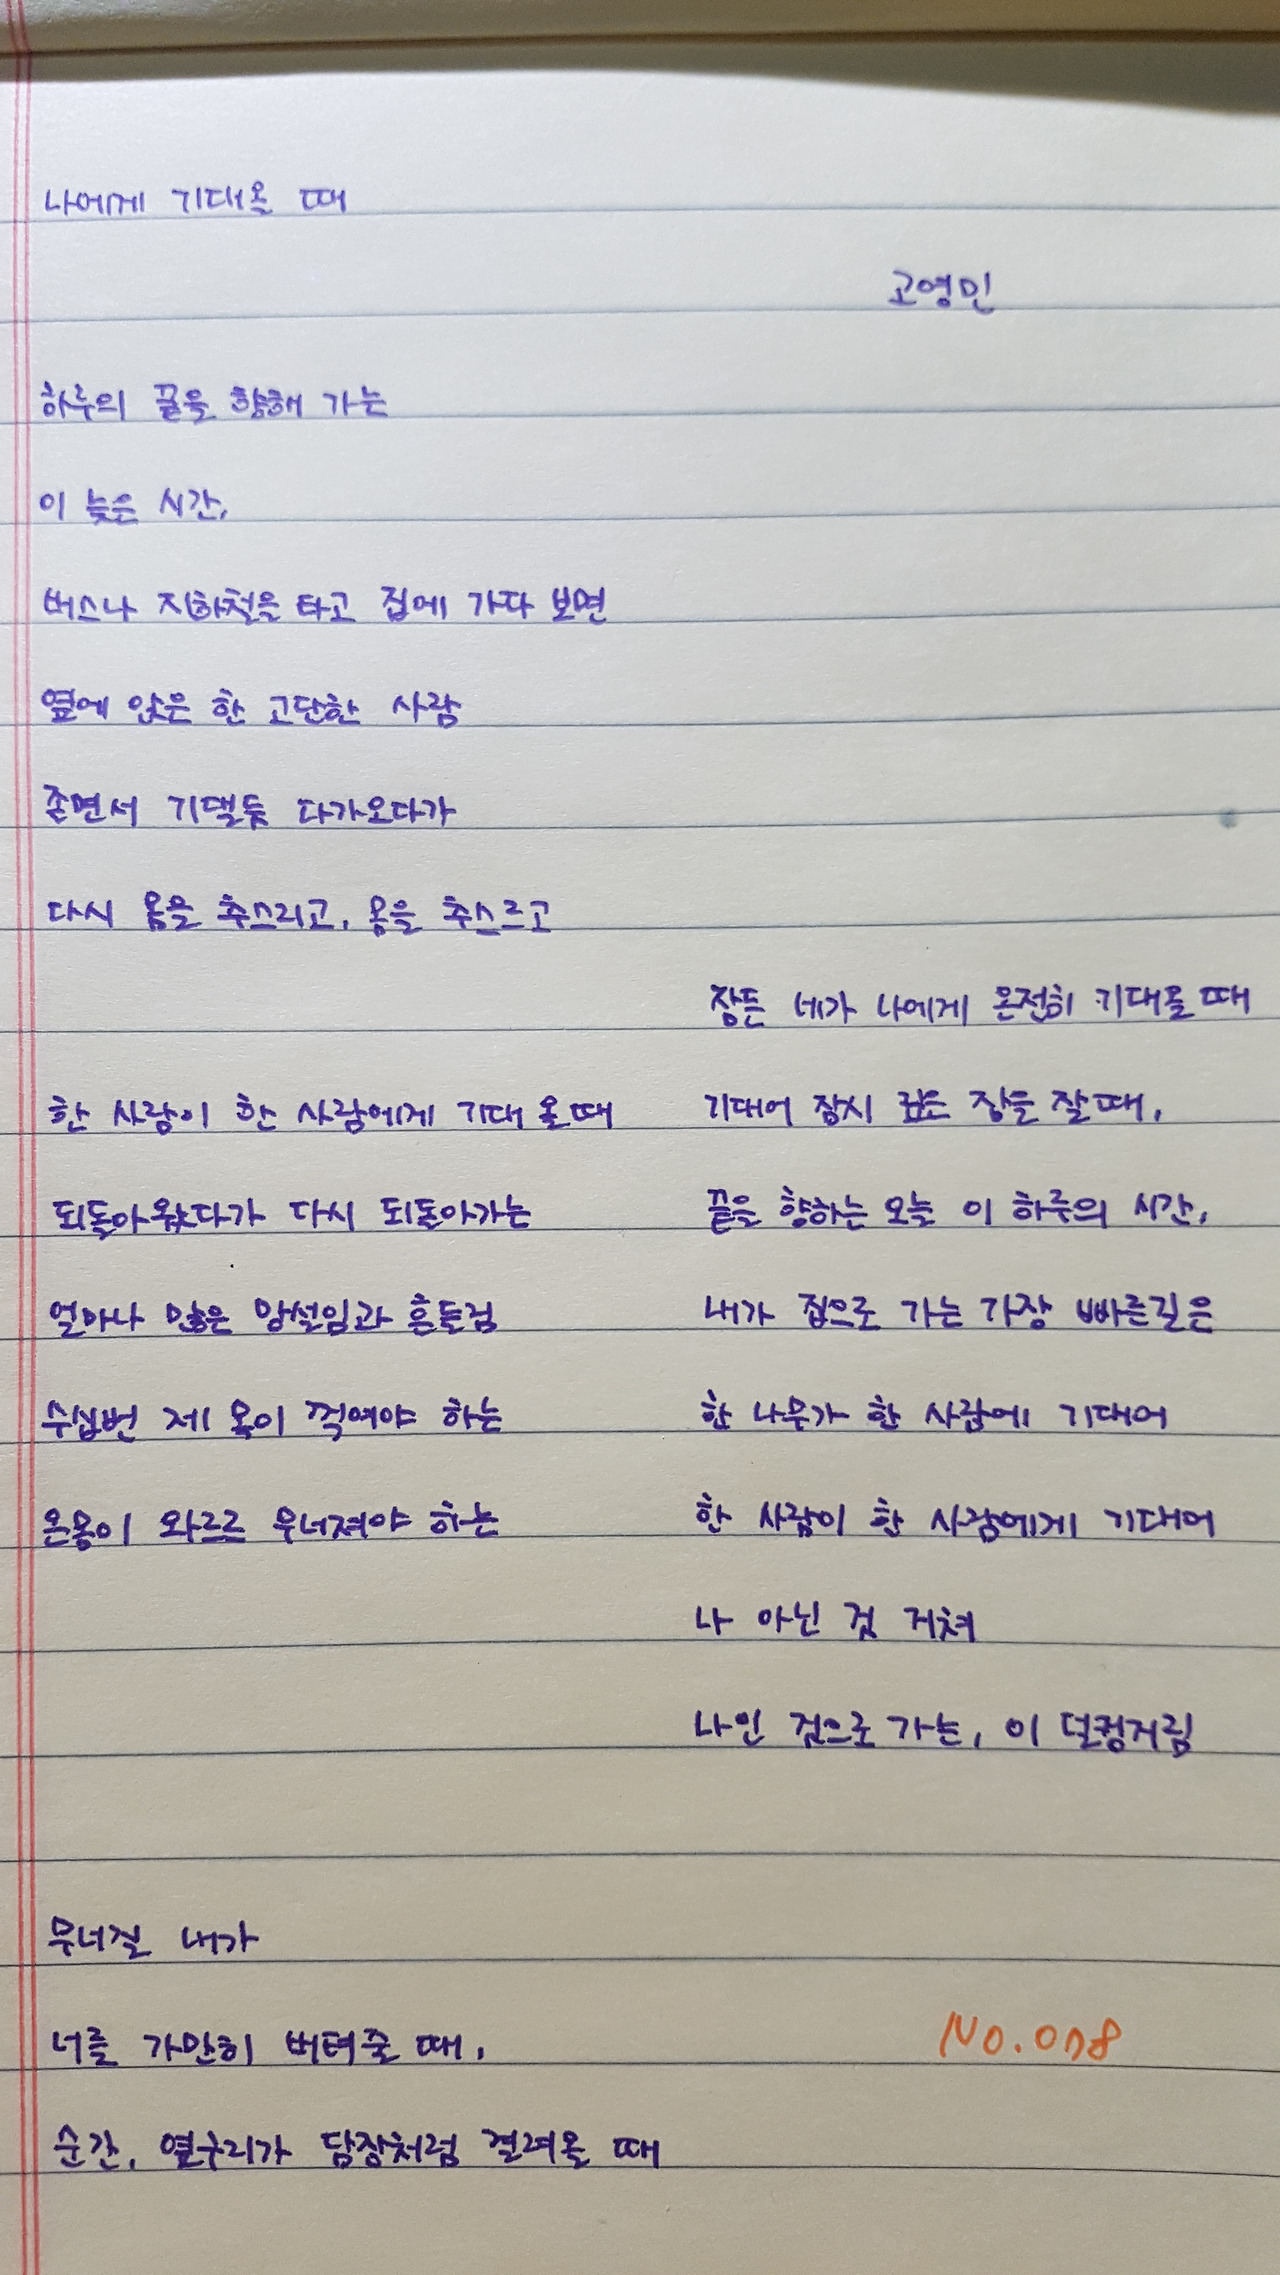 나에게 기대올 때
고영민
하루의 끝을 향해 가는
이 늦은 시간,
버스나 지하철을 타고 집에 가다 보면
옆에 앉은 한 고단한 사람
졸면서 기댈듯 다가오다가
다시 몸을 추스리고, 몸을 추스르고
한 사람이 한 사람에게 기대 올 때
되돌아왔다가 다시 되돌아가는
얼마나 많은 망설임과 흔들림
수십번 제 목이 꺽여야 하는
온몸이 와르르 무너져야 하는
무너질 내가
너를 가만히 버텨줄 때,
순간, 옆구리가 담장처럼 결려올 때
잠든 네가 나에게 온전히 기대올 때
기대어 잠시 깊은 잠을 잘 때,
끝을 향하는 오늘 이 하루의 시간,
내가 집으로 가는 가장 빠른길은
한 나무가 한 사람에 기대어
한 사람이 한 사람에게 기대어
나 아닌 것 거쳐
나인 것으로 가는, 이 덜컹거림
No.078